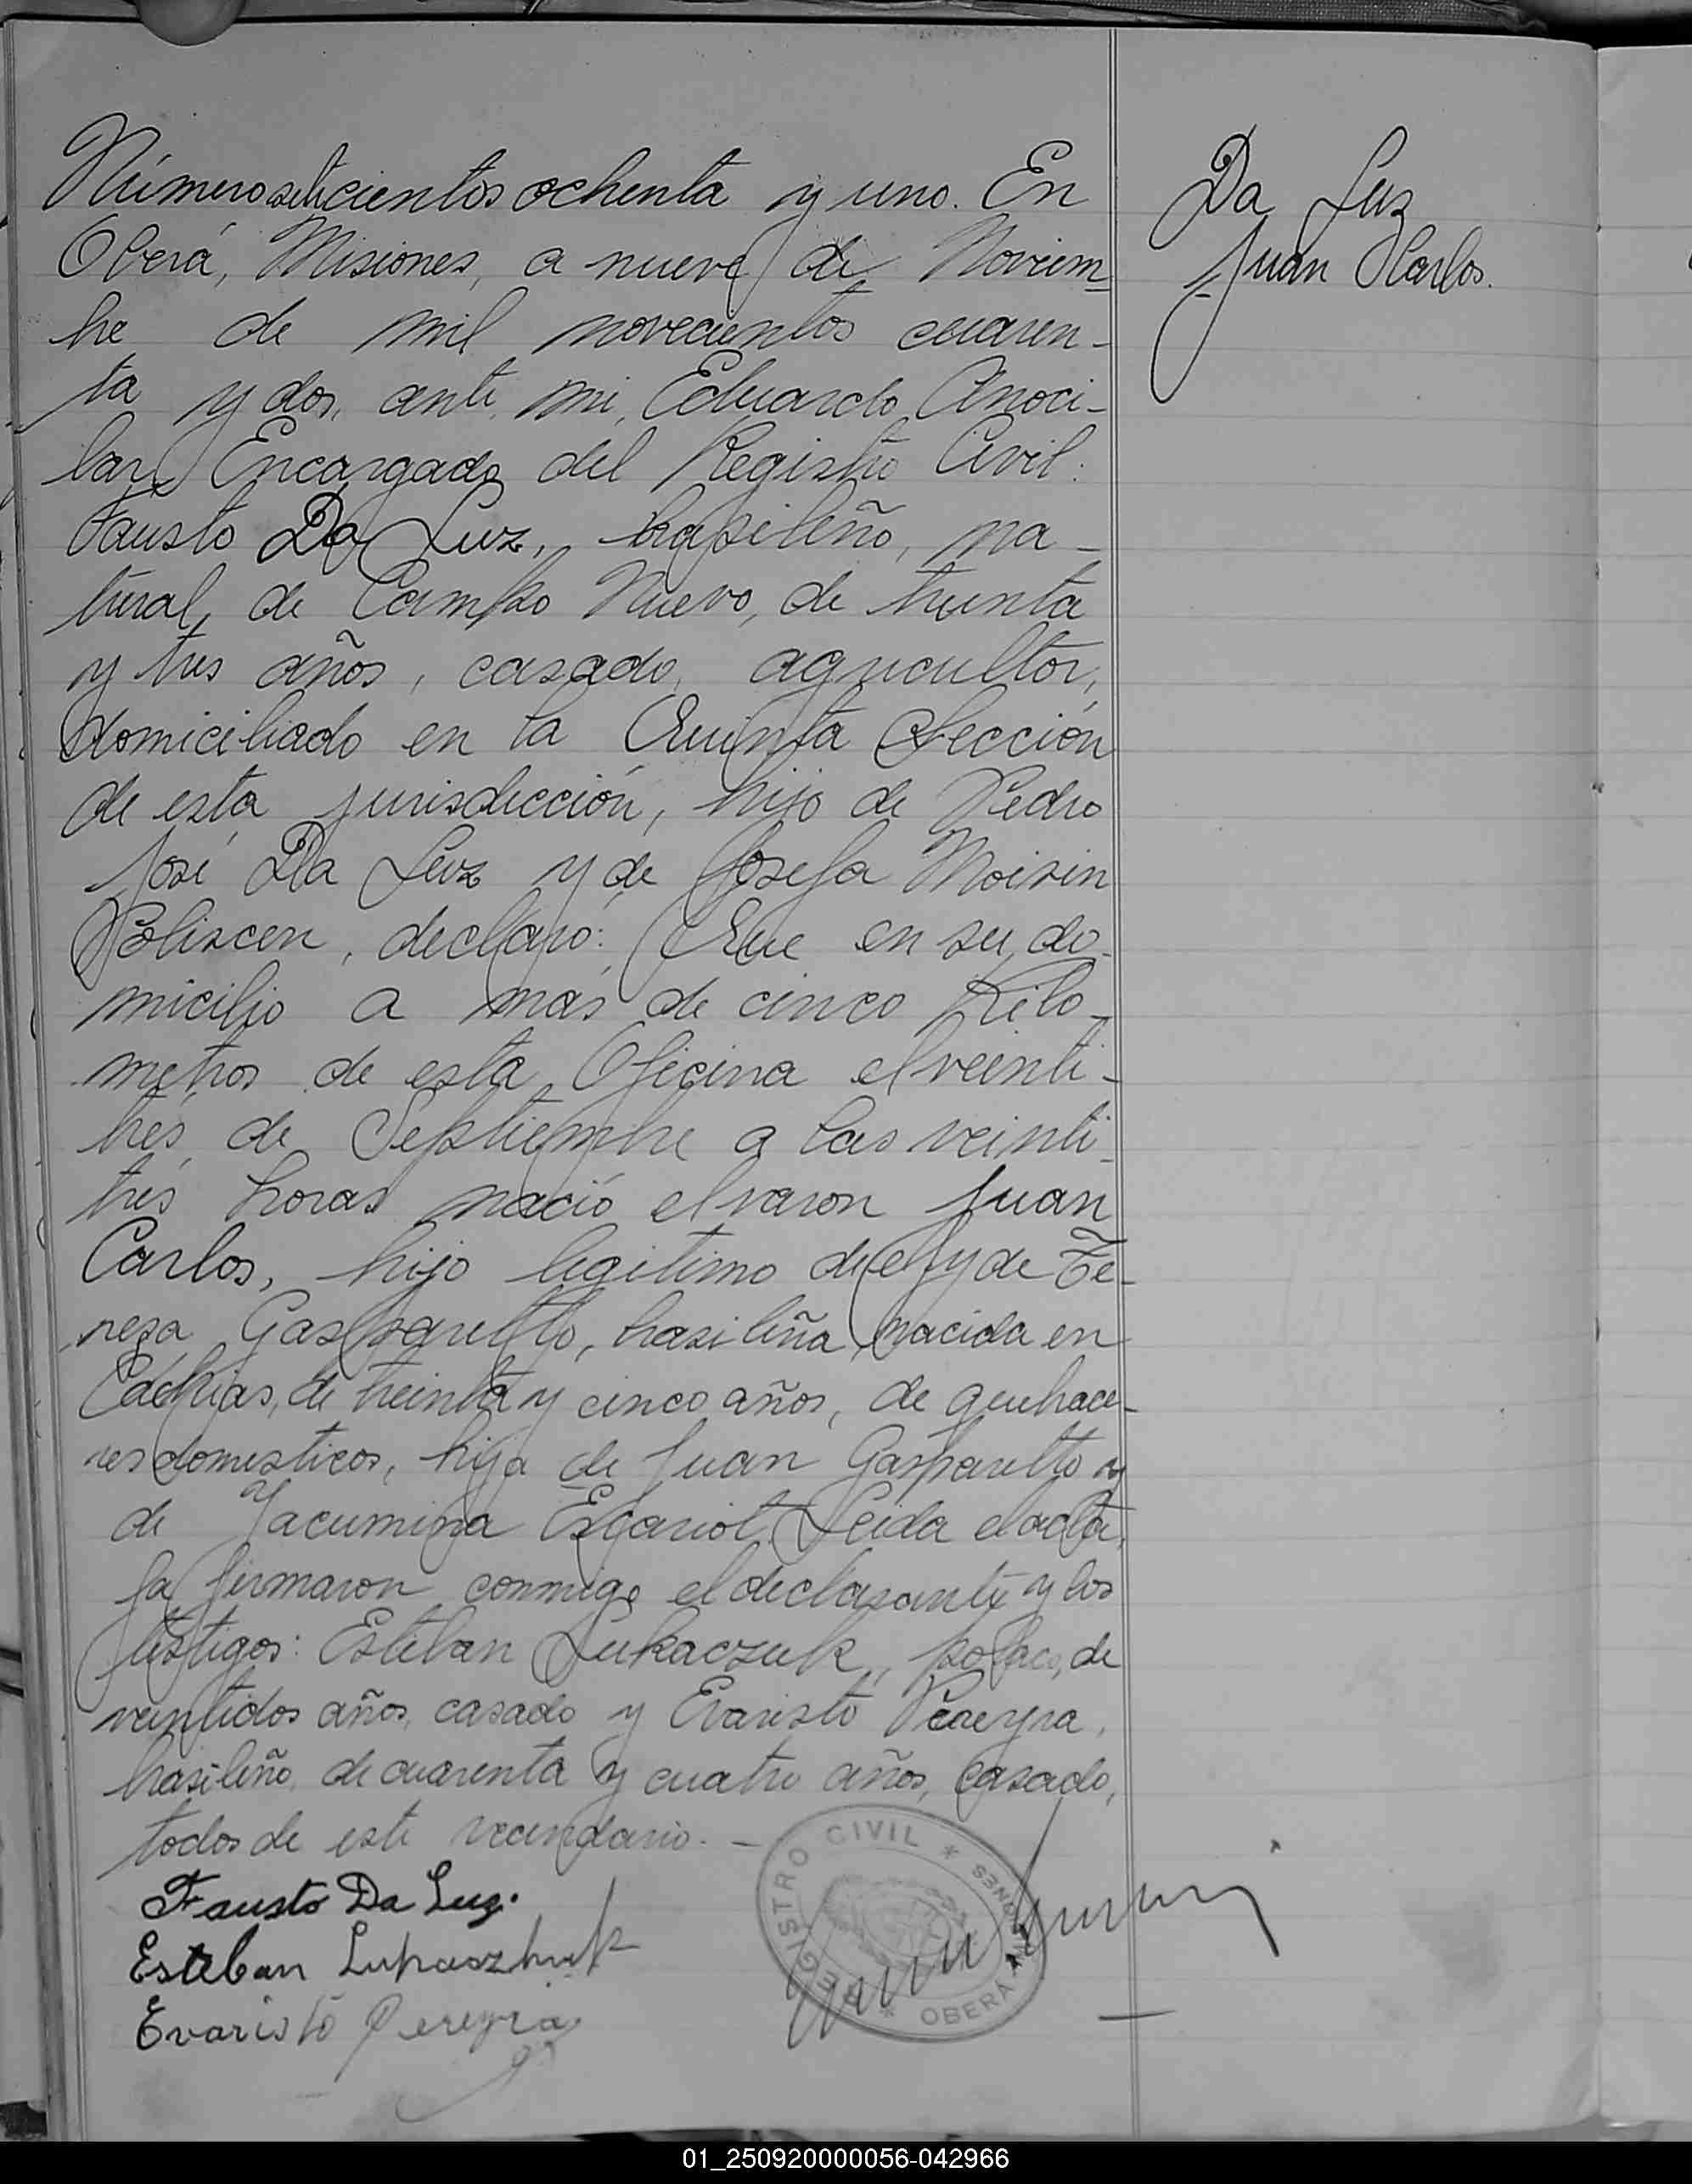 Número setecientos ochenta y uno. En
Oberá, Misiones, a nueve de Noviem=
bre de mil novecientos cuaren-
ta y dos, ante mi, Eduardo Anoci-
bar, Encargado del Registro Civil:
Fausto Da Luz, brasileño, na-
tural, de Campo Nuevo, de treinta
y tres años, casado, agricultor,
domiciliado en la Quinta Sección
de esta jurisdicción, hijo de Pedro
José Da Luz y de Josefa Moisin
Poliscen, declaró: Que en su do-
micilio a más de cinco Kilo-
metros de esta Oficina el veinti-
trés de Septiembre a las veinti-
trés horas nació el varon Juan
Carlos, hijo legitimo de el y de Te-
resa Gasparetto, brasileña, nacida en
de treinta y cinco años, de quehace-
res domesticos, hija de Juan Gasparetto y
de Jacumina Esgariot. Leida el acta,
la firmaron conmigo el declarante y los
testigos: Esteban Lukaczuk, polaco, de
veintidos años, casado y Evaristo Pereyra,
brasileño, de cuarenta y cuatro años, casado,
todos de este vecindario. -
Fausto Da Luz.
Esteban Lukaszhuk
Evaristo Pereyra
REGISTRO CIVIL * MISIONES
* OBERÁ
Da Luz
Juan Carlos.
01_250920000056-042966